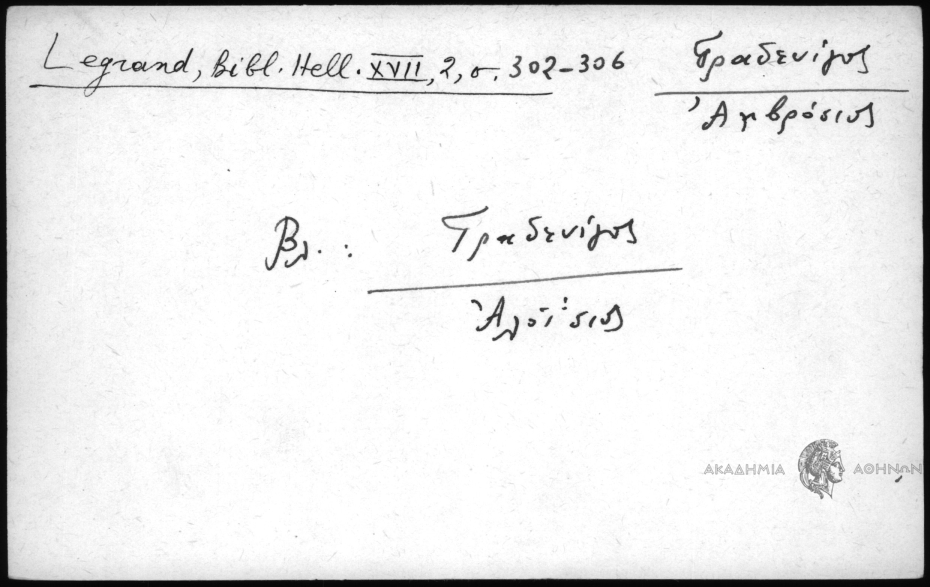 Legrand, Bibl. Hell. XVII, 2, σ. 302-306
Γραδενίγος
Ἀμβρόσιος
Βλ. :
Γραδενίγος
Ἀλοΐσιος
ΑΚΑΔΗΜΙΑ ΑΘΗΝΩΝ